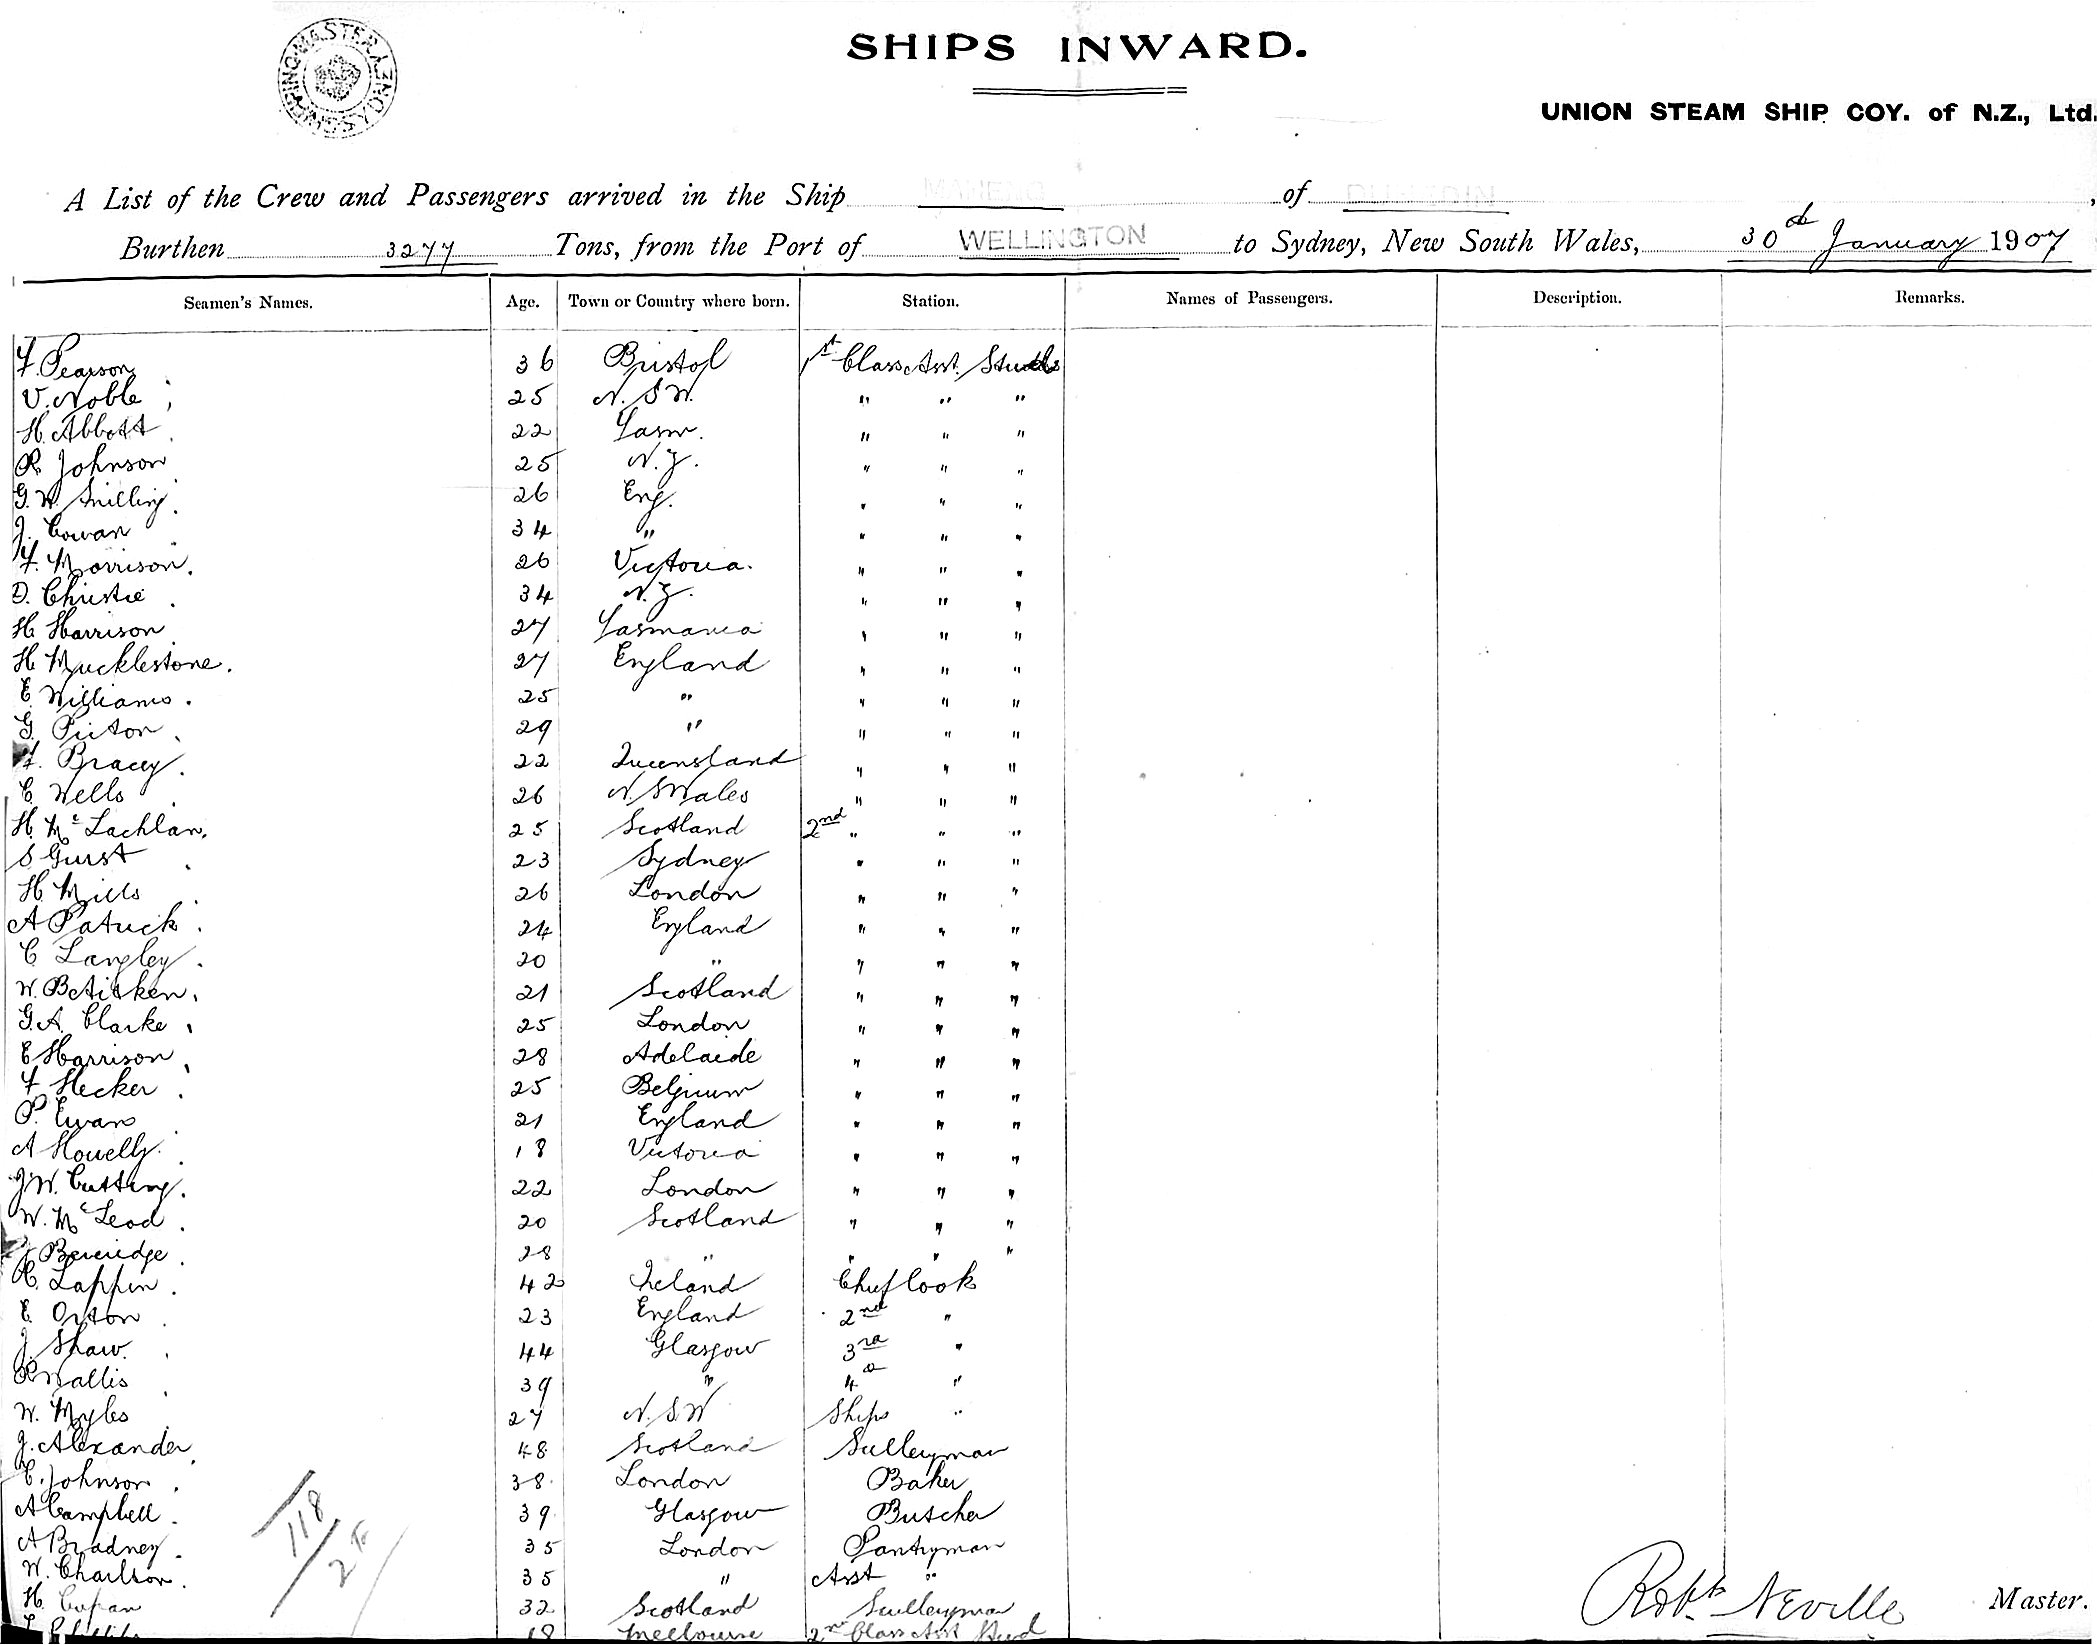 SHIPPING MASTER SYDNEY
SHIPS INWARD.
UNION STEAM SHIP COY. of N.Z., Ltd.
A List of the Crew and Passengers arrived in the Ship MAHENO of DUNEDIN,
Burthen 3277 Tons, from the Port of WELLINGTON to Sydney, New South Wales, 30th January 1907
Seamen's Names. Age. Town or Country where born. Station. Names of Passengers. Description. Remarks.
F. Pearson 36 Bristol 1st Class Asst. Stwds
V. Noble 25 N.S.W. " " "
H. Abbott 22 Tasm. " " "
R. Johnson 25 N.Z. " " "
G. W. Snilling 26 Eng. " " "
J. Cowan 34 " " " "
F. Morrison. 26 Victoria. " " "
D. Christie 34 N.Z. " " "
H. Harrison 27 Tasmania " " "
H. Mucklestone. 27 England " " "
E. Williams. 25 " " " "
G. Picton 29 " " " "
F. Bracey 22 Queensland " " "
C. Wells 26 N. S Wales " " "
H. McLachlan. 25 Scotland 2nd " " "
S Gurst 23 Sydney " " "
H. Mills 26 London " " "
A Patrick 24 England " " "
C Langley 20 " " " "
W. B Aitken. 21 Scotland " " "
G. A. Clarke 25 London " " "
E Harrison 28 Adelaide " " "
F Hecker 25 Belgium " " "
P. Ewans 21 England " " "
A Howells. 18 Victoria " " "
J W. Cutting. 22 London " " "
W. McLeod 20 Scotland " " "
J Beveridge 28 " " " "
C. Lappin 42 Ireland Chief Cook
E Orton 23 England 2nd "
J. Shaw. 44 Glasgow 3rd "
R Wallis 39 " 4th "
W. Myles 27 N.S.W Ships "
J. Alexander 48 Scotland Sculleryman
C. Johnson 38. London Baker
A Campbell 39 Glasgow Butcher
A Bradney 35 London Pantryman
W. Charlton 35 " Asst "
H. 32 Scotland Sculleryman
18 Melbourne 2nd Class Asst Stwd
118
2
Robt. Neville Master.